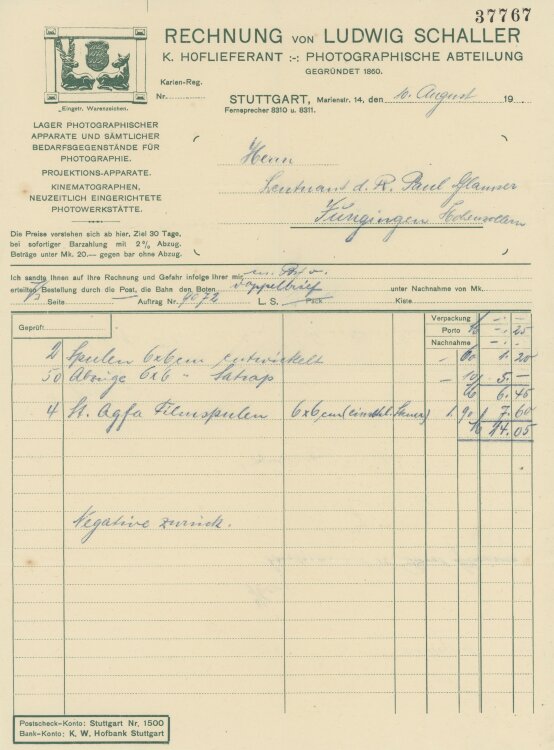 37767
RECHNUNG VON LUDWIG SCHALLER
K. HOFLIEFERANT :-: PHOTOGRAPHISCHE ABTEILUNG
GEGRÜNDET 1860.
Eingetr. Warenzeichen.
Karien-Reg.
Nr.
STUTTGART, Marienstr. 14, den 10. August 19
Fernsprecher 8310 u. 8311.
LAGER PHOTOGRAPHISCHER
APPARATE UND SÄMTLICHER
BEDARFSGEGENSTÄNDE FÜR
PHOTOGRAPHIE.
PROJEKTIONS-APPARATE.
KINEMATOGRAPHEN,
NEUZEITLICH EINGERICHTETE
PHOTOWERKSTÄTTE.
Herrn
Leutnant d. R. Paul Glamser
Jungingen Hohenzollern
Die Preise verstehen sich ab hier, Ziel 30 Tage,
bei sofortiger Barzahlung mit 2% Abzug.
Beträge unter Mk. 20.— gegen bar ohne Abzug.
Ich sandte Ihnen auf Ihre Rechnung und Gefahr infolge Ihrer mir
erteilten Bestellung durch die Post, die Bahn den Boten Doppelbrief unter Nachnahme von Mk.
Seite — Auftrag Nr. 4072 L. S. Pack Kiste
Geprüft:
Verpackung —.—
Porto —.25
Nachnahme —.—
2 Spulen 6x6cm entwickelt — 60 1.20
50 Abzüge 6x6 " Satrap — 10 5.—
6.45
4 St. Agfa Filmspulen 6x6cm 1.90 7.60
14.05
Negative zurück.
Postscheck-Konto: Stuttgart Nr, 1500
Bank-Konto: K. W. Hofbank Stuttgart